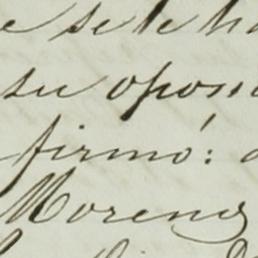 e se le ha
su oposi
firmó:
Moreno